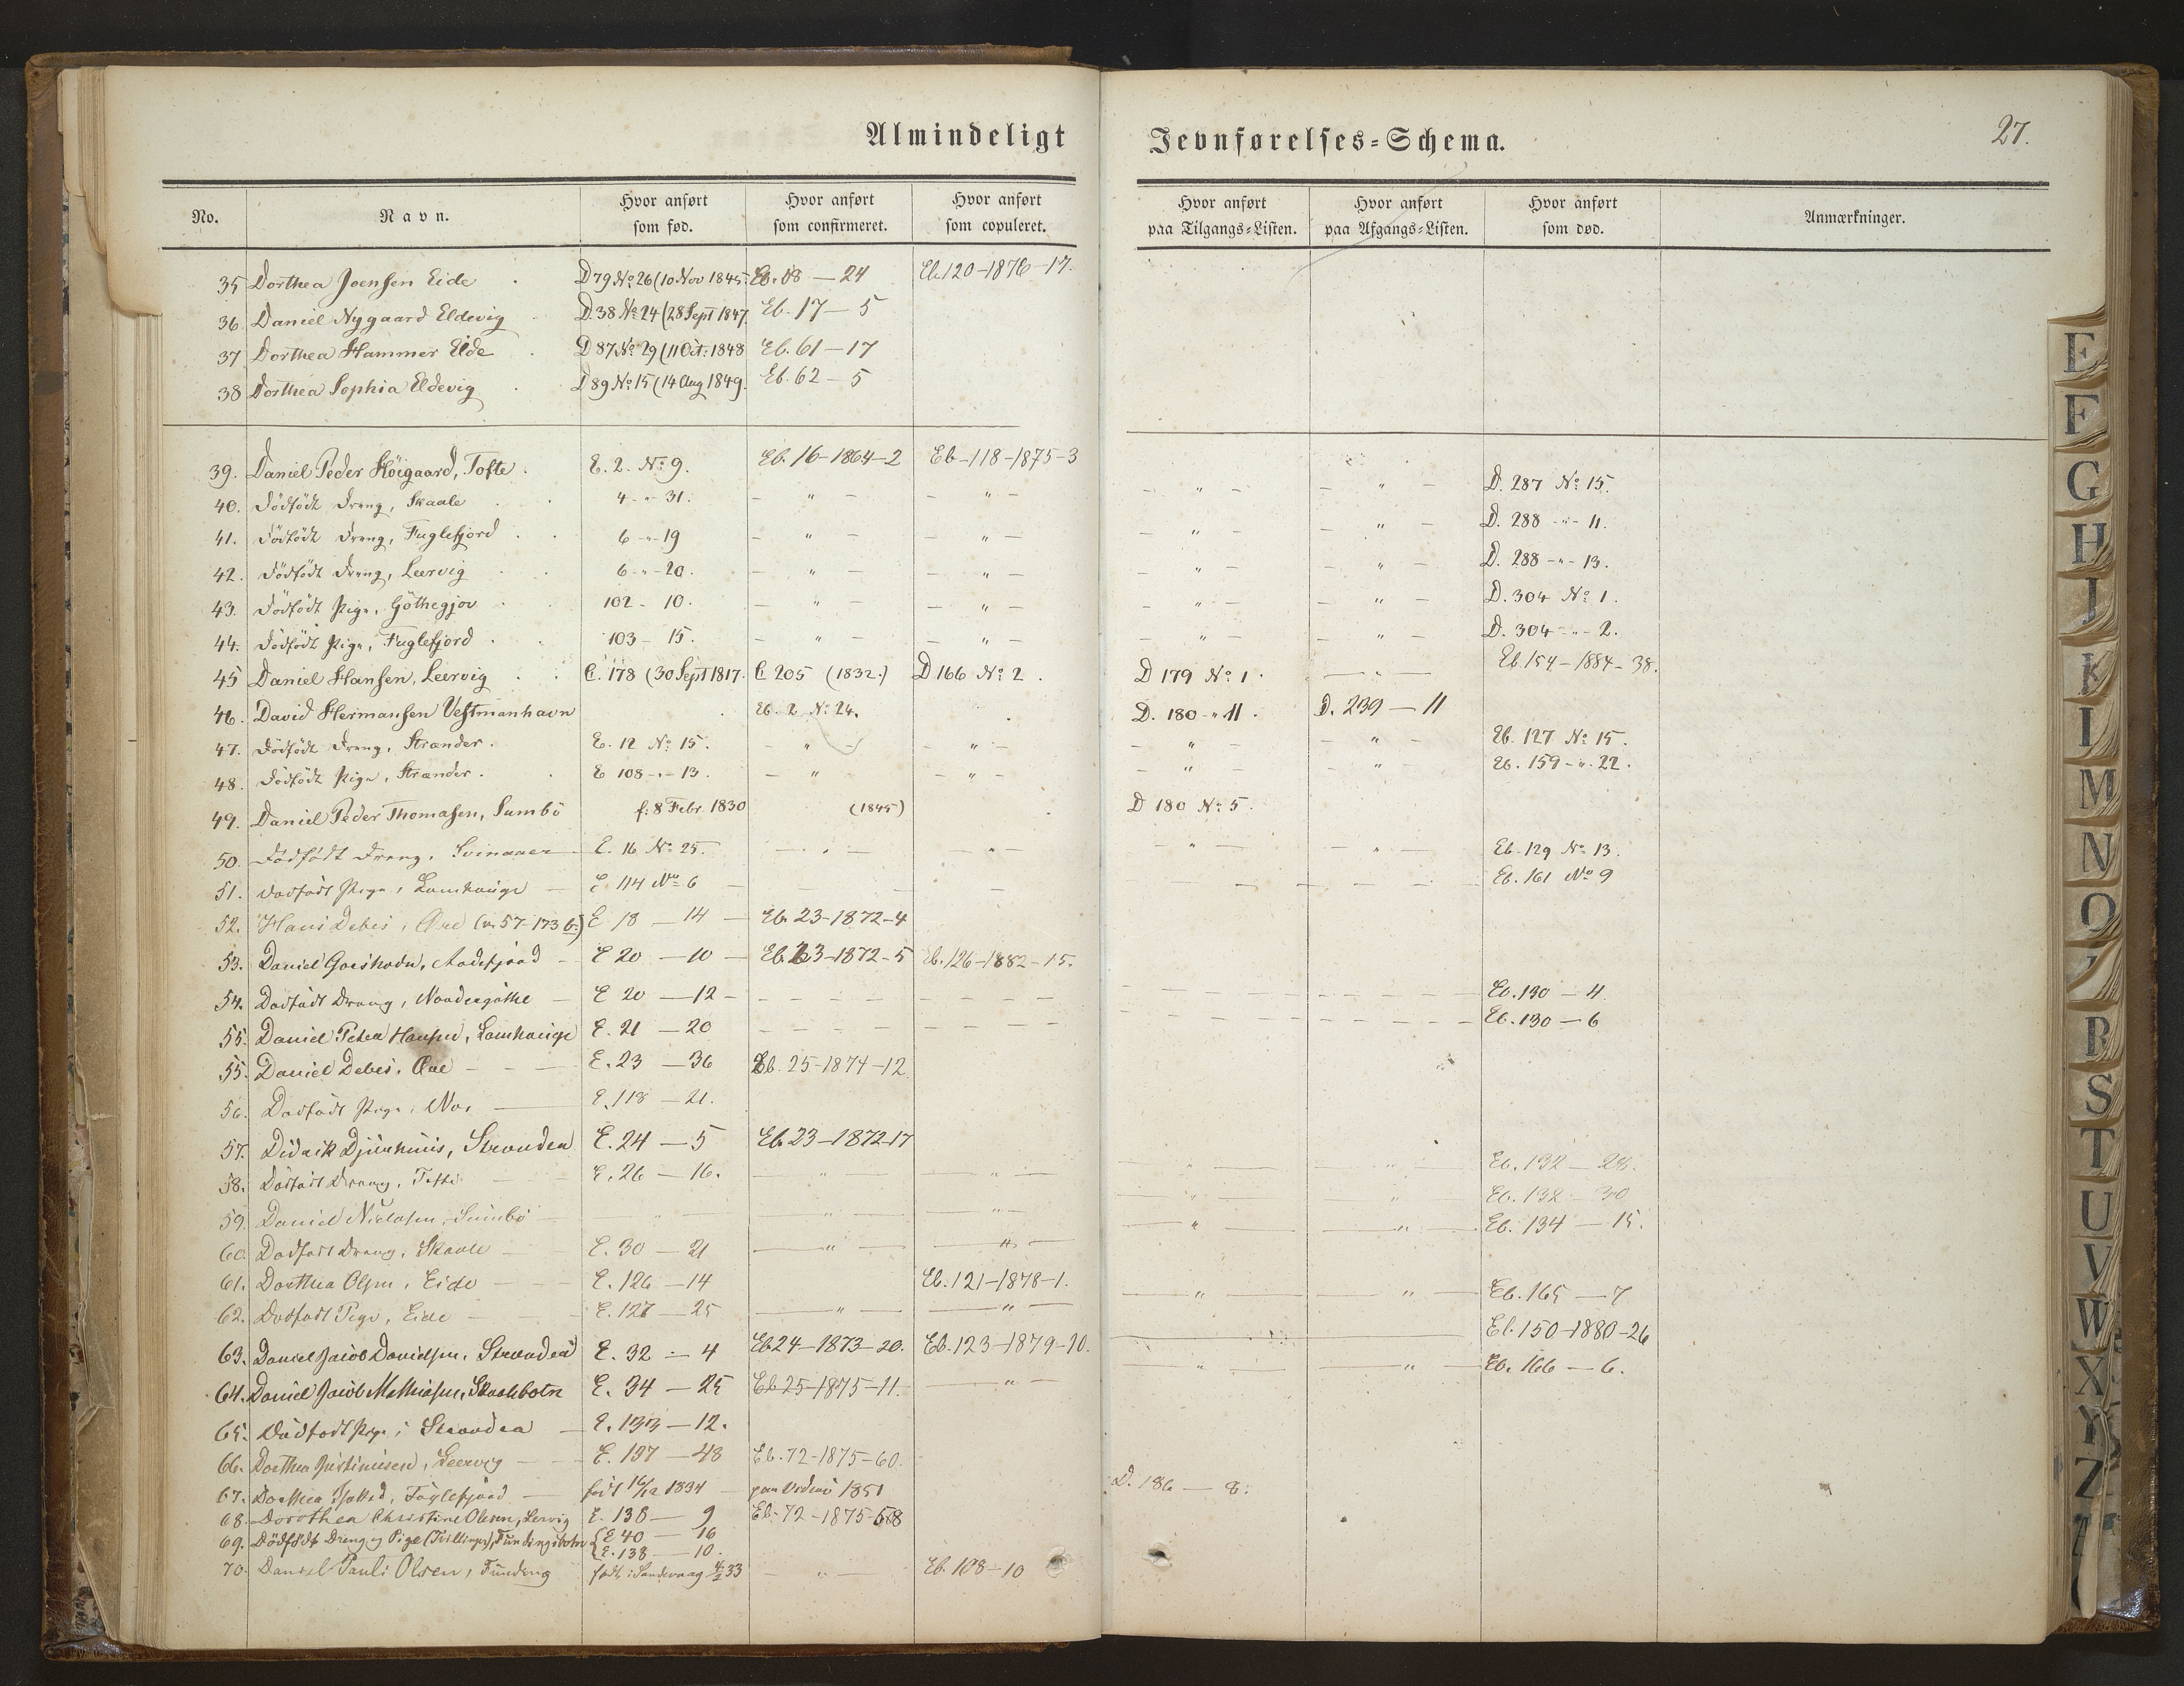 Almindeligt Jevnførelses=Schema.
27.
No. Navn. Hvor anført som fød. Hvor anført som confirmeret. Hvor anført som copuleret. Hvor anført paa Tilgangs=Listen. Hvor anført paa Afgangs=Listen. Hvor anført som død. Anmærkninger.
35 Dorthea Joensen Eide D79 No 26 (10 Nov 1845 Eb. 08 — 24 Eb. 120–1876–17.
36. Daniel Nygaard Eldevig D.38 No 24 (28 Sept 1847. Eb. 17 — 5
37 Dorthea Hammer Eide D 87 No 29 (11 Oct: 1848 Eb. 61 — 17
38 Dorthea Sophia Eldevig D 89 No 15 (14 Aug 1849. Eb. 62 — 5
39. Daniel Peder Höigaard, Tofte. E. 2. No 9. Eb. 16–1864–2 Eb–118–1875–3
40. Dödfödt Dreng, Skaale 4 - " - 31. — " — — " — — " — — " — D. 287 No 15.
41. Dödfödt Dreng, Fuglefjord 6 - " - 19 — " — — " — — " — — " — D. 288 - " - 11.
42. Dödfödt Dreng, Leervig 6 - " - 20. — " — — " — — " — — " — D. 288 - " - 13.
43. Dödfödt Pige, Göthegjov 102 - 10. — " — — " — — " — — " — D. 304 No 1.
44. Dödfödt Pige, Fuglefjord 103 - 15. — " — — " — — " — — " — D. 304 - " - 2.
45 Daniel Hansen, Leervig C. 178 (30 Sept 1817. C 205 (1832.) D 166 No 2. D 179 No 1. — " — Eb. 154–1884–38.
46. David Hermansen Vestmanhavn Eb. 2 No 24. D. 180 - " 11. D. 239 — 11
47. Dödfödt Dreng, Strander. E. 12 No 15. — " — — " — — " — — " — Eb. 127 No 15.
48. Dödfödt Pige, Strander. E 108 - " - 13. — " — — " — — " — — " — Eb. 159 - " - 22.
49. Daniel Peder Thomasen, Sumbö f: 8 Febr. 1830 (1845) D 180 No 5.
50. Dödfödt Dreng, Svinaaer E. 16 No 25. — " — " — — " — — " — Eb. 129 No 13.
51. Dödfödt Pige, Lamhauge E. 114 No 6 — — — — Eb. 161 No 9
52. Hans Debes, Öre (v. 57-173 b.) E 18 — 14 — Eb. 23–1872–4
53. Daniel Goeshodn, Andefjord E 20 — 10 — Eb. 23–1872–5 Eb. 126–1882–15.
54. Dödfödt Dreng, Nordregöthe E 20 — 12 — Eb. 130 — 4
55. Daniel Peter Hansen, Lamhauge E. 21 — 20 Eb. 130 — 6
55. Daniel Debes, Öre E. 23 — 36 Eb. 25–1874–12
56. Dödfödt Pige, E. 118 — 21.
57. Didrik Djurhuus, Strander E. 24 — 5 Eb. 23–1872–17
58. Dödfödt Dreng, Tofte E. 26 — 16. — " — — " — — " — — " — Eb. 132 — 28.
59. Daniel Nielsen, Sumbö — " — — " — — " — — " — — " — Eb. 132 — 30
60. Dödfödt Dreng, Skaale E. 30 — 21 — " — — " — — " — — " — Eb. 134 — 15.
61. Dorthea Olsen, Eide E. 126 — 14 Eb. 121–1878–1.
62. Dödfödt Pige, Eide E. 127 — 25 — " — — " — — " — — " — Eb. 165 — 7
63. Daniel Jacob Danielsen, Strander E. 32 — 4 Eb 24–1873–20. Eb. 123–1879–10.
64. Daniel Jacob Mathiasen, Skaalebotn E. 34 — 25 Eb 25–1875–11. — " — Eb. 150–1880–26
65. Dödfödt Pige, Strander E. 133 — 12. — " — — " — Eb. 166 — 6.
66. Dorthea Justinusen, Leervig E. 137 — 48 Eb. 72–1875–60.
67. Dorthea, Fuglefjord födt 16/12 1834 1851 D. 186 — 8.
68. Dorothea Christine Olesen, Lervig E. 138 — 9 Eb. 72–1875–58
69. Dödfödt Dreng og Pige (Tvillinger), Fundingsbotn {E 40 — 16
E. 138 — 10.
70. Daniel Pauli Olsen, Funding födt i Sandevaag 4/2 33 — " — Eb. 108–10
E
F
G
H
J
K
I
M
N
O
R
S
T
U
V
W
X
Y
Z